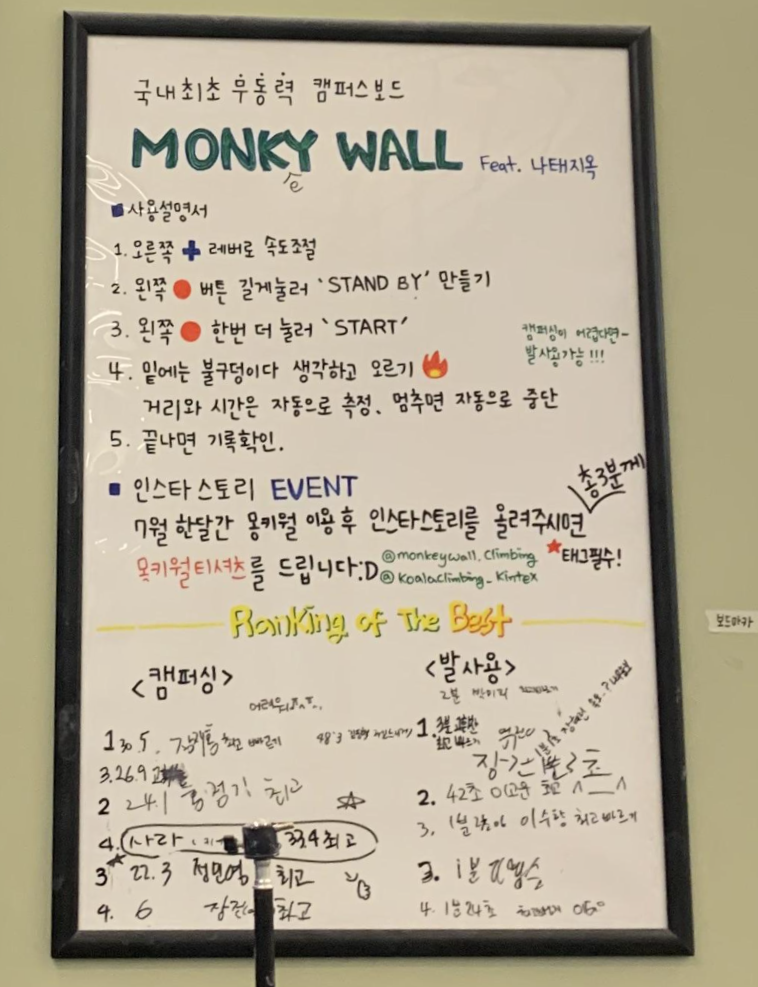 국내최초 무동력 캠퍼스보드
MONKY WALL Feat. 나태지옥
e
■ 사용설명서
1. 오른쪽 ✚ 레버로 속도조절
2. 왼쪽 🔴 버튼 길게눌러 'STAND BY' 만들기
3. 왼쪽 🔴 한번 더 눌러 'START'
캠퍼싱이 어렵다면~
발사용가능!!!
4. 밑에는 불구덩이다 생각하고 오르기 🔥
거리와 시간은 자동으로 측정. 멈추면 자동으로 중단
5. 끝나면 기록확인.
■ 인스타스토리 EVENT
총3분께
7월 한달간 몽키월 이용 후 인스타스토리를 올려주시면
몽키월티셔츠를 드립니다:D
@monkeywall.climbing
@koalaclimbing_kintex
★태그필수!
Ranking of The Best
<캠퍼싱>
1 30.5.
3. 26.9
2 24.1 최고
4. 사라 33.4 최고
3 22.3 정민영 최고
4. 6 최고
<발사용>
1.
2. 42초 이고운 최고
3. 1분 이수항 최고빠르기
3. 1분
4. 1분24초
보드마카